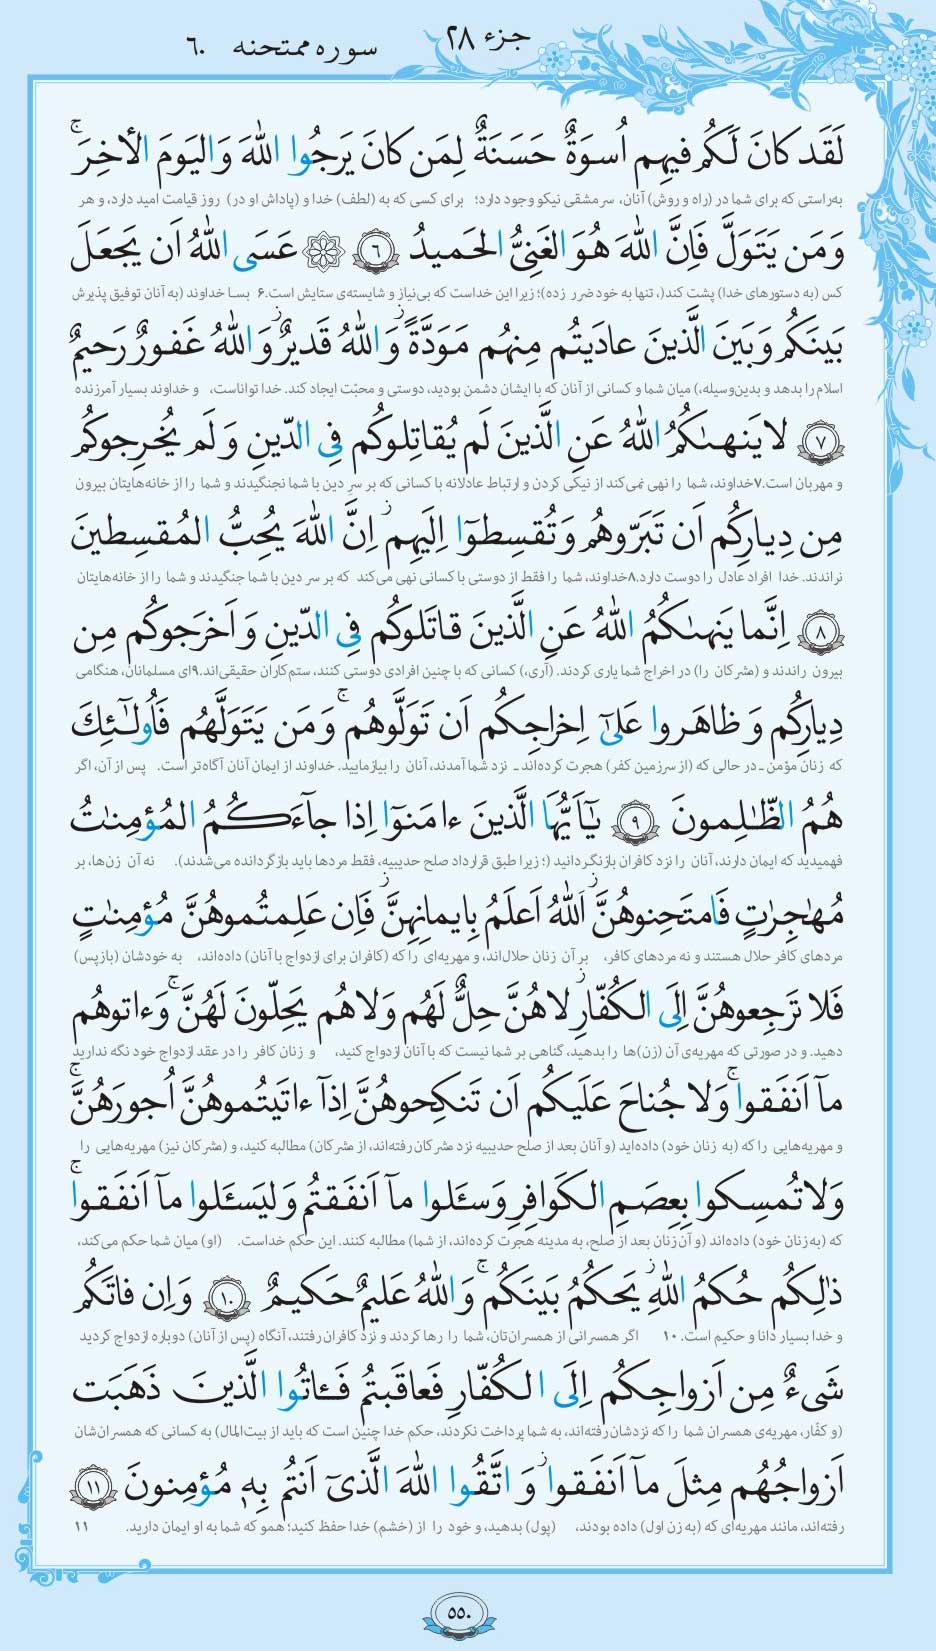 جزء ۲۸
سوره ممتحنه ۶۰
لَقَد كانَ لَكُم فيهِم اُسوَةٌ حَسَنَةٌ لِمَن كانَ يَرجُوا اللّٰهَ وَاليَومَ الأٰخِرَۚ
به‌راستی که برای شما در (راه و روش) آنان، سرمشقی نیکو وجود دارد؛ برای کسی که به (لطف) خدا و (پاداش او در) روز قیامت امید دارد، و هر
وَمَن يَتَوَلَّ فَاِنَّ اللّٰهَ هُوَ الغَنِیُّ الحَميدُ ﴿۶﴾ ۞ عَسَی اللّٰهُ اَن يَجعَلَ
کس (به دستورهای خدا) پشت کند(، تنها به خود ضرر زده)؛ زیرا این خداست که بی‌نیاز و شایسته‌ی ستایش است.۶ بسا خداوند (به آنان توفیق پذیرش
بَينَكُم وَبَينَ الَّذينَ عادَيتُم مِنهُم مَوَدَّةًۚ وَاللّٰهُ قَديرٌۚ وَاللّٰهُ غَفورٌ رَحيمٌ
اسلام را بدهد و بدین‌وسیله،) میان شما و کسانی از آنان که با ایشان دشمن بودید، دوستی و محبّت ایجاد کند. خدا تواناست، و خداوند بسیار آمرزنده
﴿۷﴾ لا يَنهىٰكُمُ اللّٰهُ عَنِ الَّذينَ لَم يُقاتِلوكُم فِی الدّينِ وَلَم يُخرِجوكُم
و مهربان است.۷خداوند، شما را نهی نمی‌کند از نیکی کردن و ارتباط عادلانه با کسانی که بر سر دین با شما نجنگیدند و شما را از خانه‌هایتان بیرون
مِن دِيارِكُم اَن تَبَرّوهُم وَتُقسِطوٓا اِلَيهِمۚ اِنَّ اللّٰهَ يُحِبُّ المُقسِطينَ
نراندند. خدا افراد عادل را دوست دارد.۸خداوند، شما را فقط از دوستی با کسانی نهی می‌کند که بر سر دین با شما جنگیدند و شما را از خانه‌هایتان
﴿۸﴾ اِنَّما يَنهىٰكُمُ اللّٰهُ عَنِ الَّذينَ قاتَلوكُم فِی الدّينِ وَاَخرَجوكُم مِن
بیرون راندند و (مشرکان را) در اخراج شما یاری کردند. (آری،) کسانی که با چنین افرادی دوستی کنند، ستم‌کاران حقیقی‌اند.۹ای مسلمانان، هنگامی
دِيارِكُم وَظاهَروا عَلىٰٓ اِخراجِكُم اَن تَوَلَّوهُمۚ وَمَن يَتَوَلَّهُم فَاُولٰٓئِكَ
که زنان مؤمن ـ در حالی که (از سرزمین کفر) هجرت کرده‌اند ـ نزد شما آمدند، آنان را بیازمایید. خداوند از ایمان آنان آگاه‌تر است. پس از آن، اگر
هُمُ الظّٰلِمونَ ﴿۹﴾ يٰٓاَيُّهَا الَّذينَ ءامَنوٓا اِذا جآءَكُمُ المُؤمِنٰتُ
فهمیدید که ایمان دارند، آنان را نزد کافران بازنگردانید (؛ زیرا طبق قرارداد صلح حدیبیه، فقط مردها باید بازگردانده می‌شدند). نه آن زن‌ها، بر
مُهٰجِرٰتٍ فَامتَحِنوهُنَّۚ اَللّٰهُ اَعلَمُ بِايمانِهِنَّۚ فَاِن عَلِمتُموهُنَّ مُؤمِنٰتٍ
مردهای کافر حلال هستند و نه مردهای کافر، بر آن زنان حلال‌اند، و مهریه‌ای را که (کافران برای ازدواج با آنان) داده‌اند، به خودشان (بازپس)
فَلا تَرجِعوهُنَّ اِلَی الكُفّارِۚ لاهُنَّ حِلٌّ لَهُم وَلاهُم يَحِلّونَ لَهُنَّۚ وَءاتوهُم
دهید. و در صورتی که مهریه‌ی آن (زن)ها را بدهید، گناهی بر شما نیست که با آنان ازدواج کنید، و زنان کافر را در عقد ازدواج خود نگه ندارید
مآ اَنفَقواۚ وَلا جُناحَ عَلَيكُم اَن تَنكِحوهُنَّ اِذآ ءاتَيتُموهُنَّ اُجورَهُنَّۚ
و مهریه‌هایی را که (به زنان خود) داده‌اید (و آنان بعد از صلح حدیبیه نزد مشرکان رفته‌اند، از مشرکان) مطالبه کنید، و (مشرکان نیز) مهریه‌هایی را
وَلا تُمسِكوا بِعِصَمِ الكَوافِرِ وَسئَلوا مآ اَنفَقتُم وَليَسئَلوا مآ اَنفَقواۚ
که (به زنان خود) داده‌اند (و آن زنان بعد از صلح، به مدینه هجرت کرده‌اند، از شما) مطالبه کنند. این حکم خداست. (او) میان شما حکم می‌کند،
ذٰلِكُم حُكمُ اللّٰهِۚ يَحكُمُ بَينَكُمۚ وَاللّٰهُ عَليمٌ حَكيمٌ ﴿۱۰﴾ وَاِن فاتَكُم
و خدا بسیار دانا و حکیم است. ۱۰ اگر همسرانی از همسران‌تان، شما را رها کردند و نزد کافران رفتند، آنگاه (پس از آنان) دوباره ازدواج کردید
شَیءٌ مِن اَزواجِكُم اِلَی الكُفّارِ فَعاقَبتُم فَـٔاتُوا الَّذينَ ذَهَبَت
(و کفّار، مهریه‌ی همسران شما را که نزدشان رفته‌اند، به شما پرداخت نکردند، حکم خدا چنین است که باید از بیت‌المال) به کسانی که همسران‌شان
اَزواجُهُم مِثلَ مآ اَنفَقواۚ وَاتَّقُوا اللّٰهَ الَّذیٓ اَنتُم بِهٖ مُؤمِنونَ ﴿۱۱﴾
رفته‌اند، مانند مهریه‌ای که (به زن اول) داده بودند، (پول) بدهید، و خود را از (خشم) خدا حفظ کنید؛ همو که شما به او ایمان دارید. ۱۱
۵۵۰